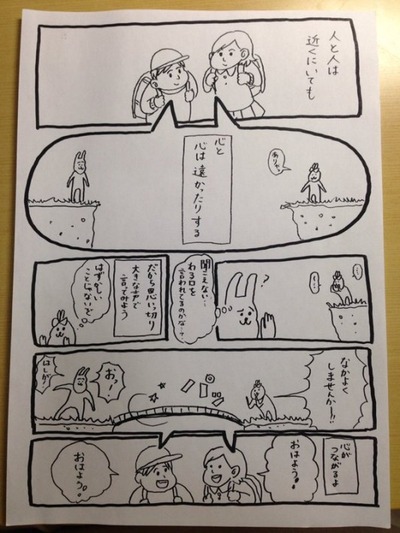 人と人は
近くにいても
心と
心は遠かったりする
?
聞こえない…
わる口を
言われてるのかな…?
だから思い切り
大きな声で
言ってみよう
はずかしい
ことじゃないぞ
なかよく
しませんかー!!
パッ
お!
はしが!
心が
つながるよ
おはよう!
おはよう!